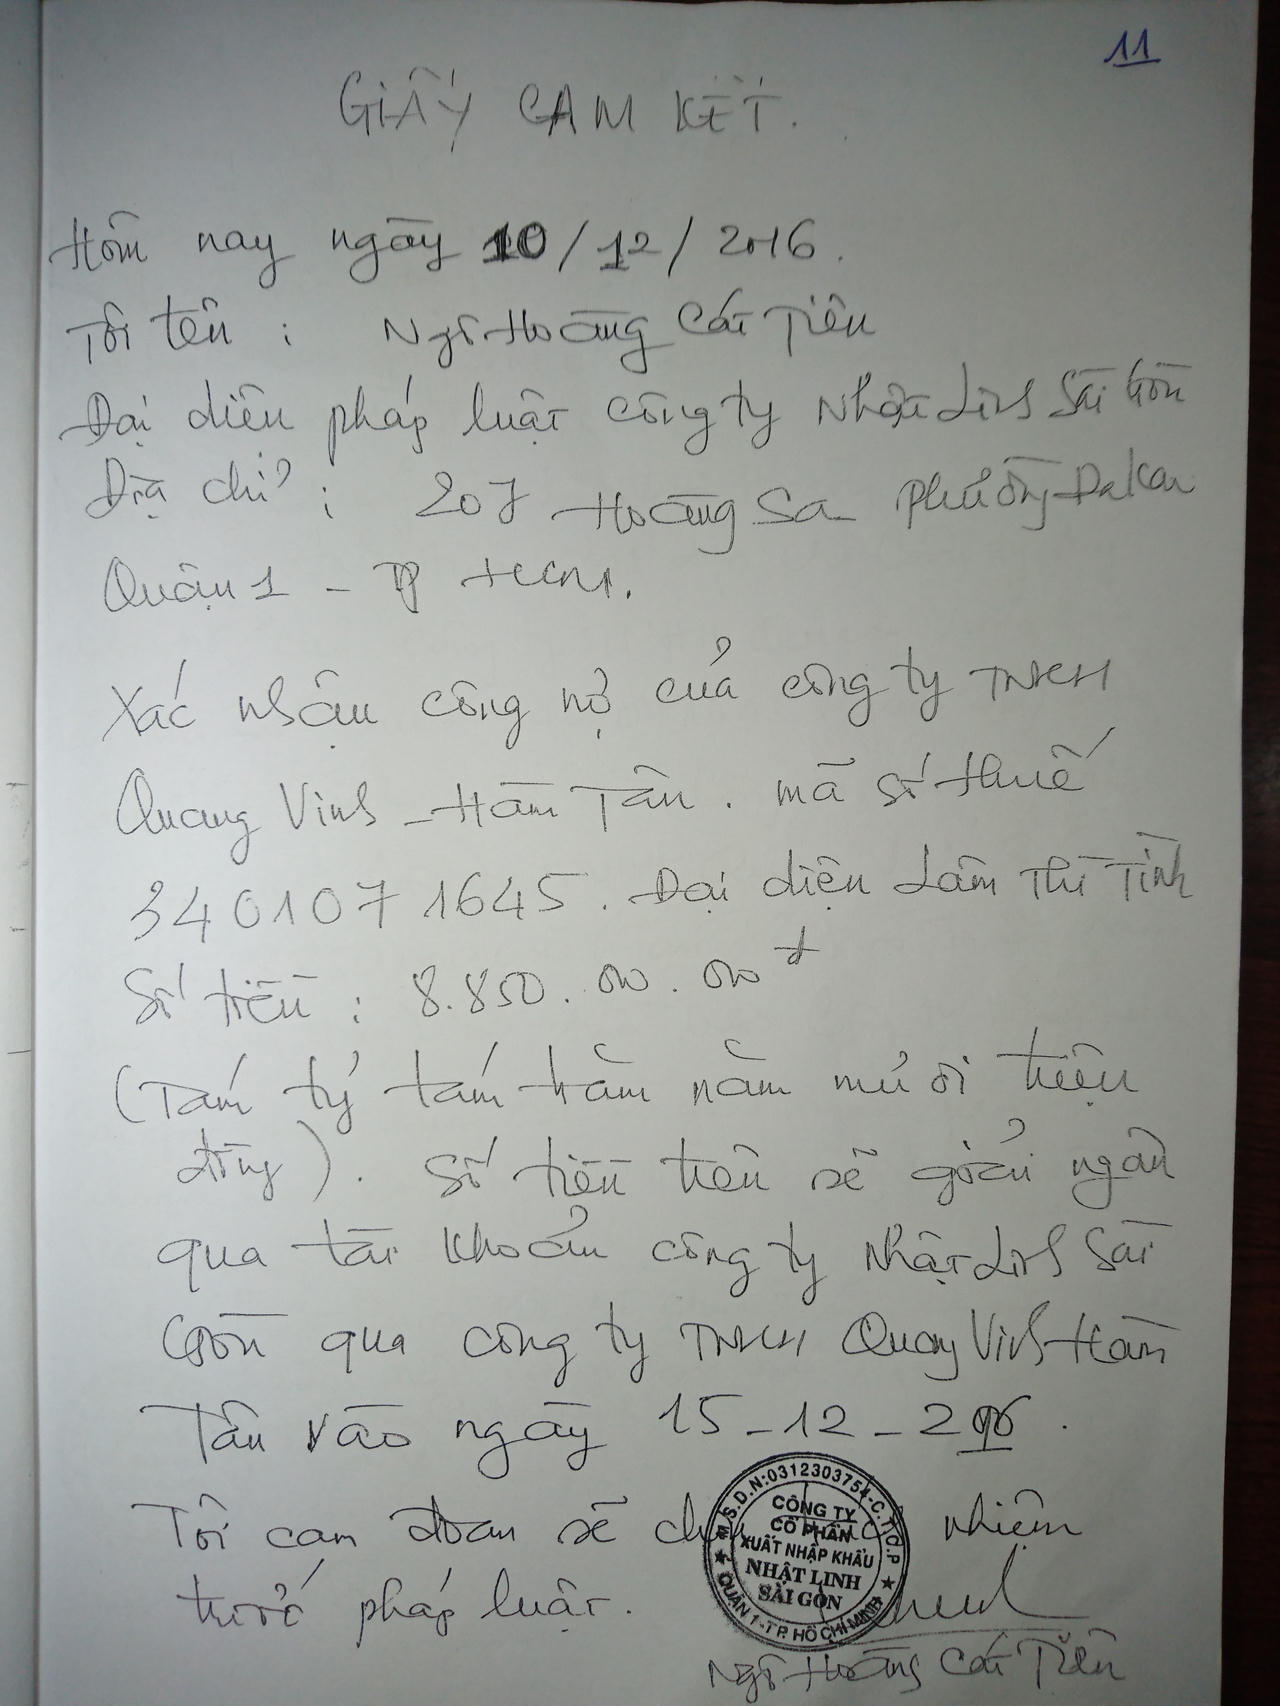 11
GIẤY CAM KẾT.
Hôm nay ngày 10/12/2016.
Tôi tên : Ngô Hoàng Cát Tiên
Đại diên pháp luật công ty Nhật Linh Sài Gòn
Địa chỉ : 207 Hoàng Sa Phường Đakao
Quận 1 - TP HCM.
Xác nhận công nợ của công ty TNHH
Quang Vinh - Hàm Tân. mã số thuế
3401071645. Đại diện Lâm Thì Tình
Số tiền : 8.850.000.000đ
(Tám tỷ tám trăm năm mươi triệu
đồng). Số tiền trên sẽ giải ngân
qua tài khoản công ty Nhật Linh Sài
Gòn qua công ty TNHH Quang Vinh Hàm
Tân vào ngày 15-12-2016.
Tôi cam đoan sẽ nhiệm
trước pháp luật.
M.S.D.N:0312303754-C.T.C.P
CÔNG TY
CỔ PHẦN
XUẤT NHẬP KHẨU
NHẬT LINH
SÀI GÒN
QUẬN 1-T.P. HỒ CHÍ MINH
Ngô Hoàng Cát Tiên